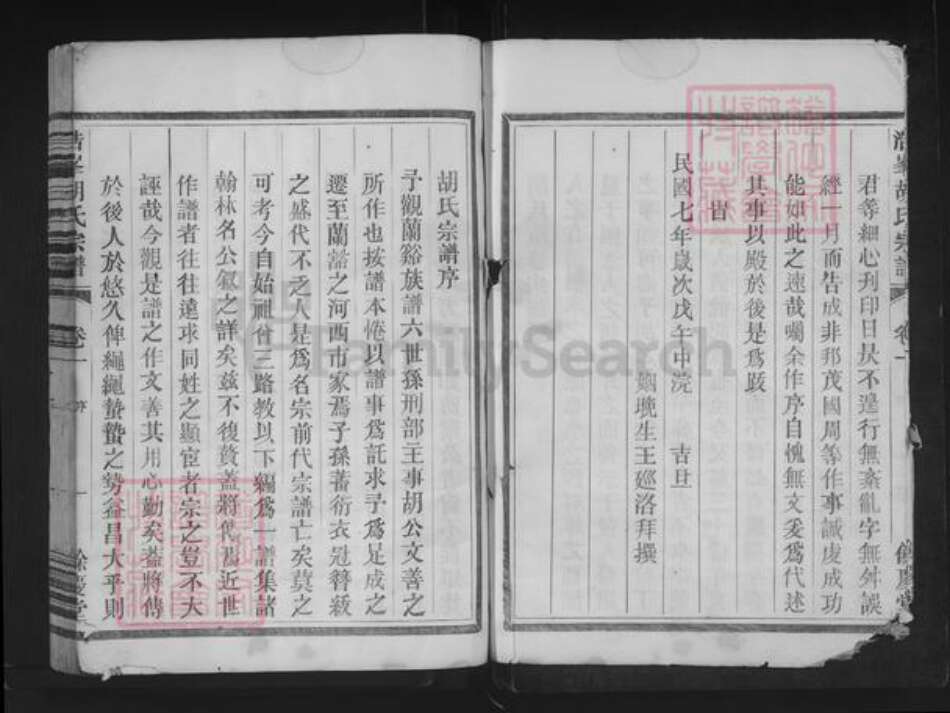 君等細心刋印日昃不遑行無紊亂字無舛誤
經一月而告成非邦茂國周等作事誠虔成功
能如此之速哉囑余作序自愧無文爰為代述
其事以殿於後是為跋
時
民國七年歲次戊午中浣 吉旦
姻晚生王廵洛拜撰
胡氏宗譜
餘慶堂
胡氏宗譜序
予觀蘭谿族譜六世孫刑部主事胡公文善之
所作也按譜本惓以譜事為託求予為足成之
遷至蘭谿之河西市家焉子孫蕃衍衣冠簪紱
之盛代不乏人是為名宗前代宗譜亡矣莫之
可考今自始祖曾三路教以下編為一譜集諸
翰林名公叙之詳矣茲不復贅蓋將傳 近世
作譜者往往遠求同姓之顯宦者宗之豈不大
誣哉今觀是譜之作文善其用心勤矣蓋將傳
於後人於悠久俾繩繩蟄蟄之勢益昌大乎則
胡氏宗譜 卷一 序
餘慶堂
FamilySearch